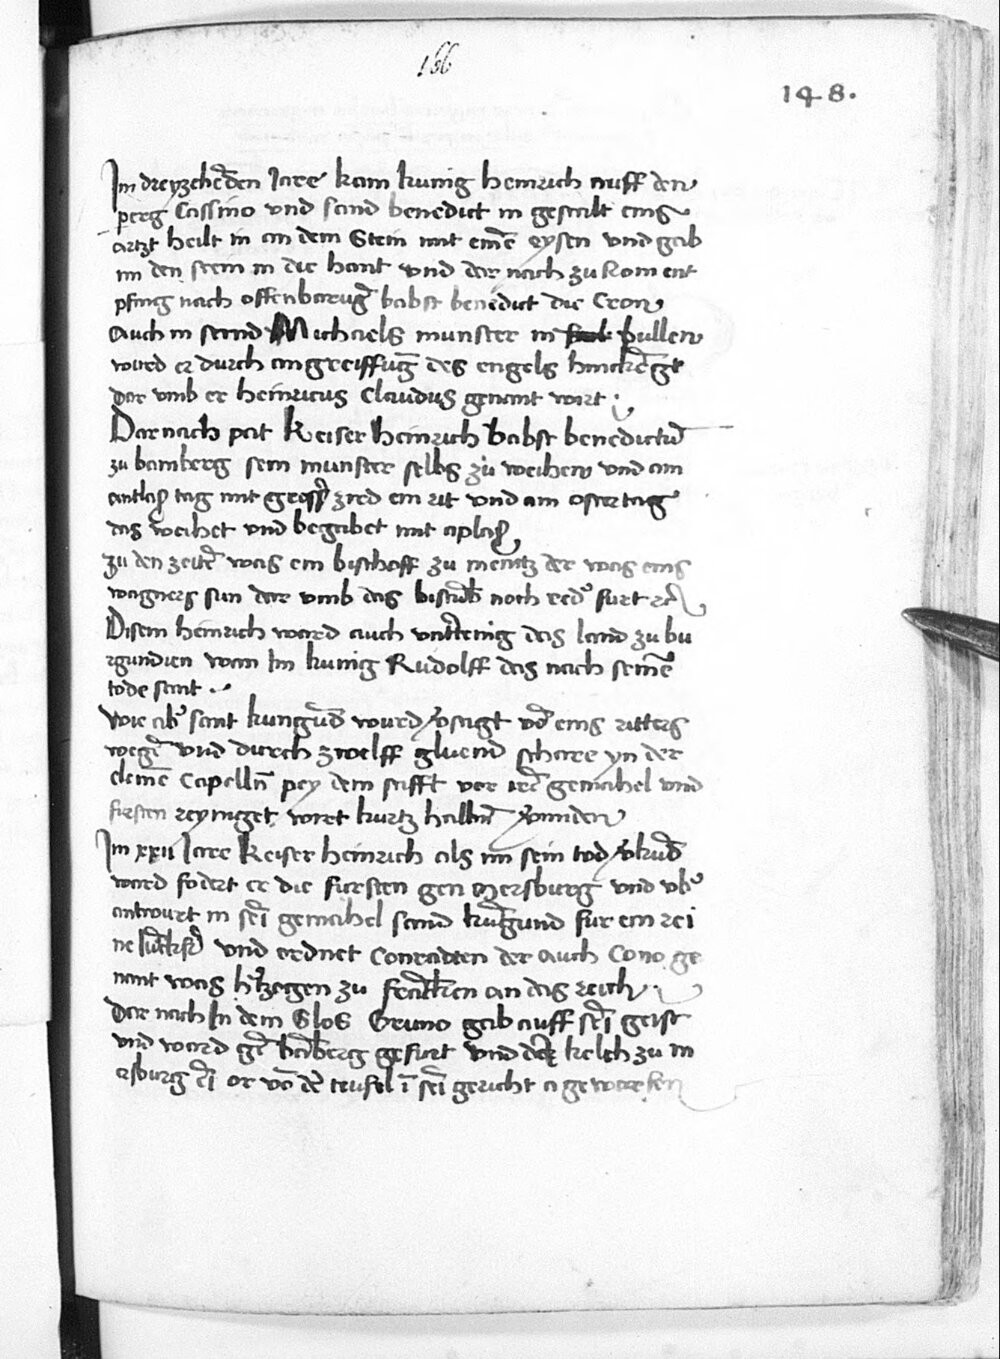 166
148.
Im dreyzeheden Jare kam kunig heinrich auff den
perg Cassino vnd sand benedict in gestalt eins
artzt heilt in an dem Stein mit eine eysen vnd gab
im den stein in die hant vnd dar nach zu Rom ent
pfing nach offenbarug babst benedict die Cron
Auch in send Michaels munster in pullen
ward er durch angreiffug des engels
dar vmb er heinricus Claudus genant wart
Dar nach pat Keiser heinrich babst benedictu
zu bamberg sein munster selbs zu weihen vnd am
antlas tag mit gross zird ein rit vnd am ostertag
das weihet vnd begabet mit aplas
Zu den zeite was ein bischoff zu meintz der was eins
wagners sun dar vmb das bistub noch redr furt rc
Disem heinrich ward auch vntterenig das land zu bu
rgundien wan Im kunig Rudolff das nach seine
tode sant
Wie abr sant kungud wurd vsagt vo eins ritters
wege vnd durch zwelff gluend schare yn der
cleine Capelln pey dem stifft vor ire gemahel vnd
fursten reyniget wirt kurtz halbn vmiden
Im xxii Jare Keiser heinrich als im sein tod vkud
ward fodert er die fursten gen Mersburg vnd vbr
antwurt in sei gemahel sand kugund fur ein rei
ne vnd ordnet Conradten der auch Cono ge
nant was hrzogen zu francken an das reich
Dar nach In dem Slos Gruno gab auff sei geist
vnd ward ge baberg gefurt vnd der kelch zu m
ersburg ei or vo de teufel i sei gericht a geworfen